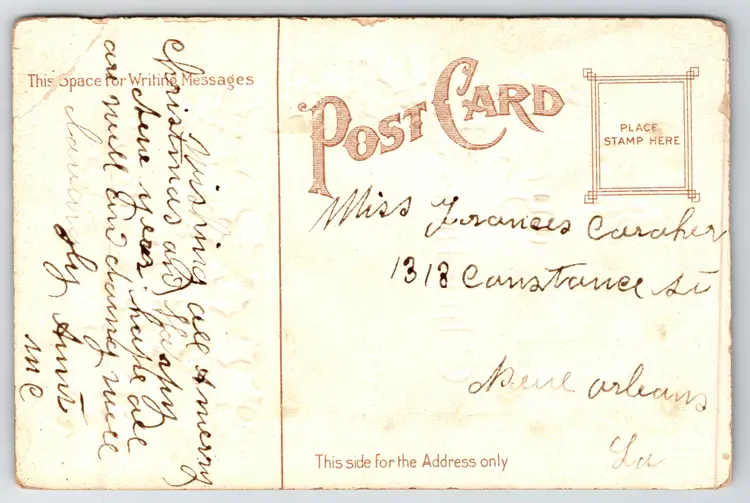 This Space for Writing Messages
Wishing all A merry
Christmas and Happy
New year. hope all
are well and doing well
Lovingly Aunt
M C
POST CARD
PLACE
STAMP HERE
Miss Frances Caraher
1318 Constance St
New Orleans
La
This side for the Address only